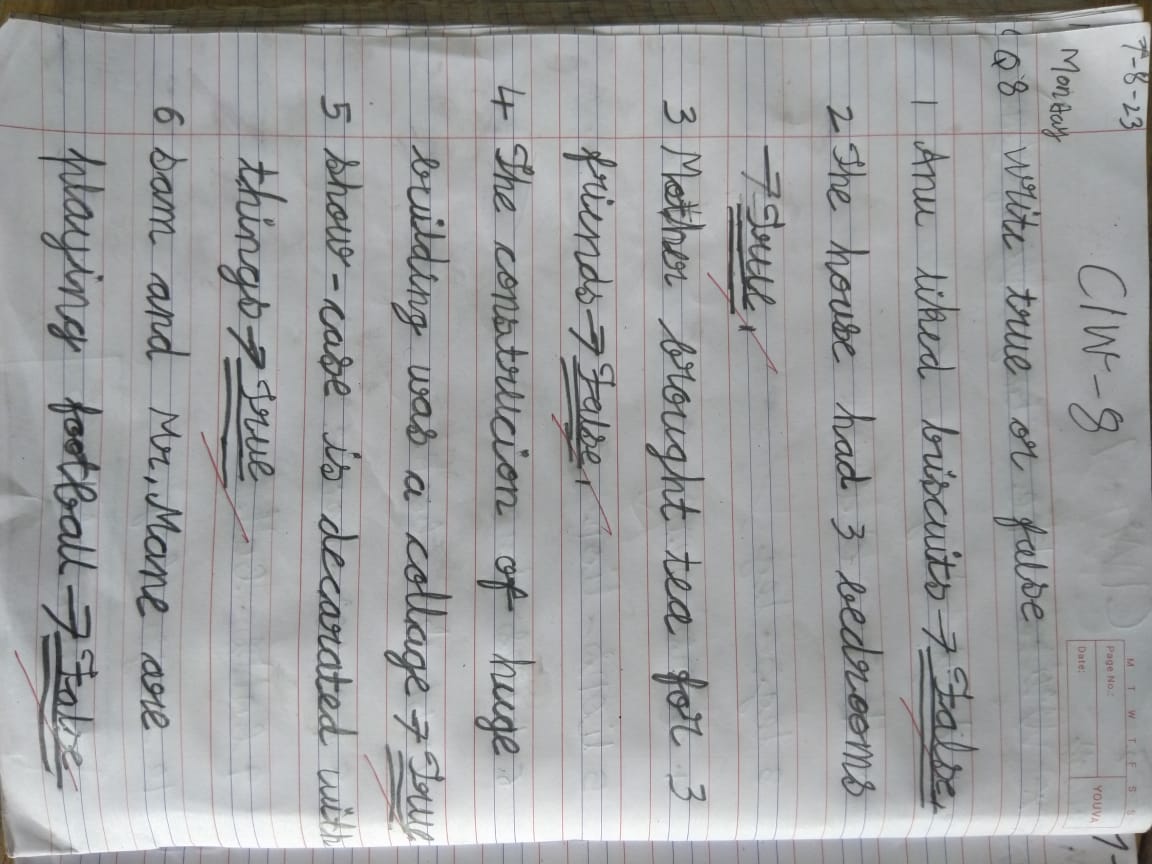 7-8-23
Monday
C/W-8
M T W T F S S
Page No.:
Date:
YOUVA
Q8 write true or false
1 Anu liked briscuits → False
2 The house had 3 bedrooms
→ True
3 Mother brought tea for 3
friends → False
4 The construcion of huge
building was a collage → True
5 show-case is decarated with
things → True
6 Sam and Mr. Mane are
playing football → False